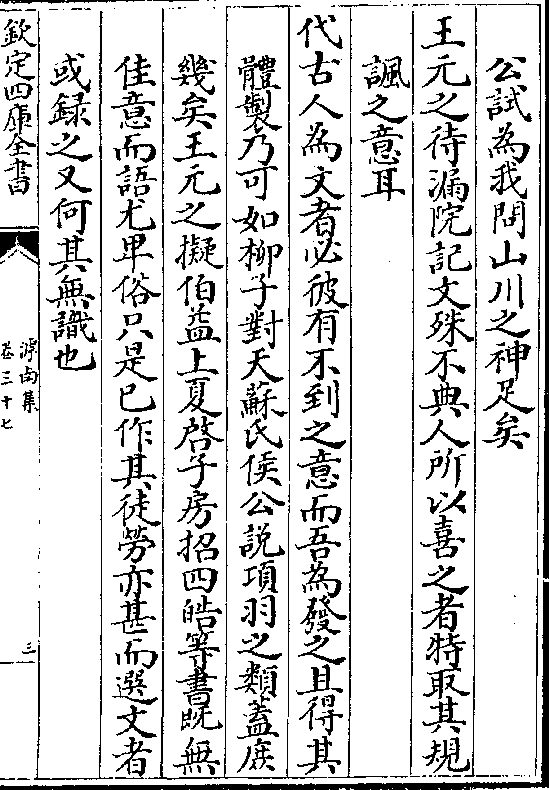 公試為我問山川之神足矣
王元之待漏院記文殊不典人所以喜之者特取其規
諷之意耳
代古人為文者必彼有不到之意而吾為發之且得其
體製乃可如柳子對天蘇氏侯公說項羽之類蓋庶
幾矣王元之擬伯益上夏啓子房招四皓等書既無
佳意而語尤卑俗只是己作其徒勞亦甚而選文者
或録之又何其無識也
欽定四庫全書
滹南集
卷三十七
三